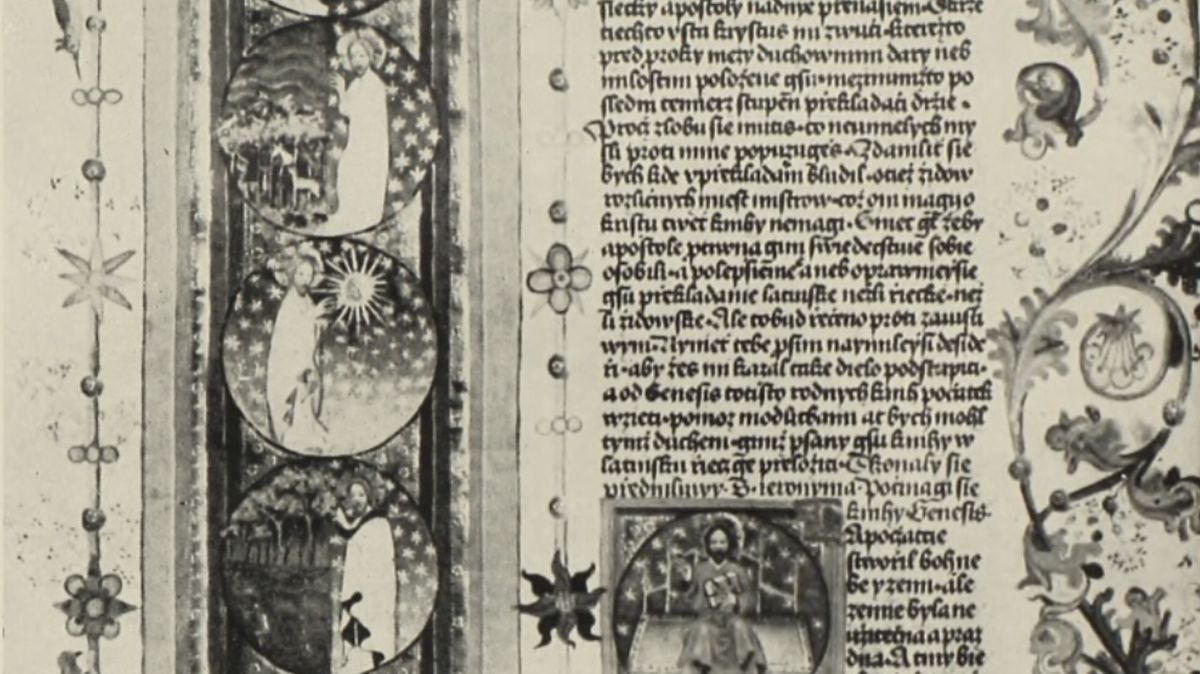 řiecky apostoly nadnye přenasiem· Skrze
tiechto vsta krystus mi zwuci· kterežto
před proky mezy duchownimi dary neb
milostmi položene gsu· mezi
sledni stupen překladači drzie·
Proč zlobu sie mutis· co neumelych my
sli proti mne popuzuges· Zdamlit sie
bych kde vpřekladani bludil· otiež židow
rozlicnych miest mistrow· což oni magi o
kristu twe knihy nemagi· Gine gt žeby
apostole pewna gim swiedecstwie sobie
osobili· a polepšieme aneb oprawenieysie
gsu překladanie latinske nežli řiecke· než
li židowske· Ale to bud řečeno proti zawisti
wym Nyniet tebe prosim naymileysi deside
ri· aby žes mi kazal take dielo podstupiti·
a od Genesis totisto rodnych knih počatek
wzieti· pomoz modlitbami at bych mohl
tymž duchem· gimž psany gsu knihy w
latinsku řiec ge přeložiti· Skonaly sie
předmluwy S· ieronyma Počinagi sie
knihy Genesis·
Apočatcie
stworil bohne
be y zemi· ale
zemie byla ne
užitečna a praz
dna· A tmy bie